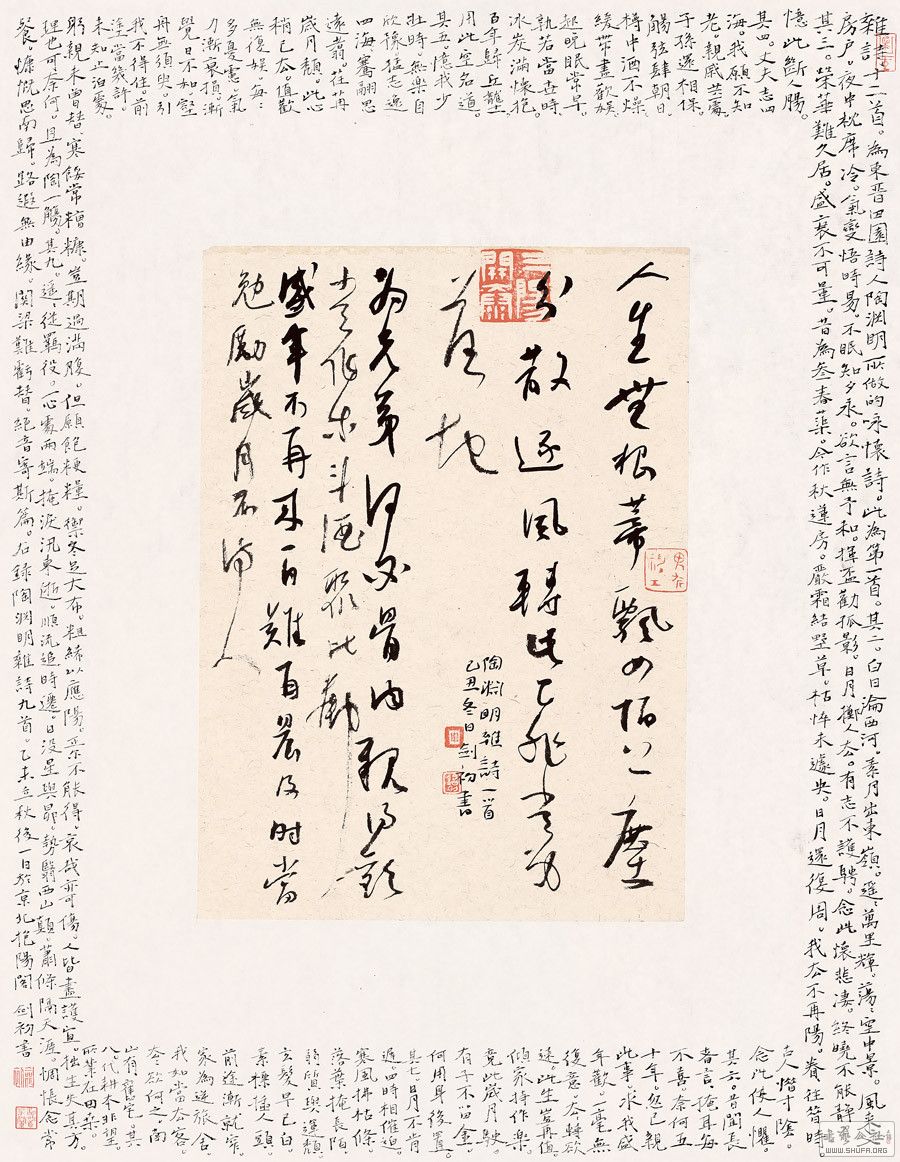 人生無根蒂飄如陌上塵
分散逐風轉此已非常身
落地
為兄弟何必骨肉親得歡
當作樂斗酒聚比鄰
盛年不再來一日難再晨及时當
勉勵歲月不待人
陶淵明雜詩一首
乙丑冬日剑初書
雜詩十二首。為東晉田園詩人陶淵明所做的咏懷詩。此為第一首。其二。白日淪西河。素月出東嶺。遥々萬里輝。蕩々空中景。風來入
房户。夜中枕席冷。氣變悟時易。不眠知夕永。欲言無予和。揮盃勸孤影。日月擲人去。有志不護騁。念此懷悲凄。終曉不能靜。
其三。榮華難久居。盛衰不可量。昔為叁春蕖。今作秋蓮房。嚴霜結野草。枯悴未遽央。日月還復周。我去不再陽。眷々往昔時
憶此斷人腸。
其四。丈夫志四
海。我願不知
老。親戚共一處
子孫還相保
觴弦肆朝日
樽中酒不燥
緩帶盡歡娱
起晚眠常早。
孰若當世時
冰炭滿懷抱。
百年歸丘壟
用此空名道。
其五。憶我少
壯時無樂自
欣豫猛志逸
四海。騫翮思
遠翥。荏苒
歲月頹。此心
稍已去。值歡
無復娱。每々
多憂慮。氣
力漸衰損漸
覺日不如壑
舟無須臾。引
我不得住前
塗當幾許。
未知止泊處。
古人惜寸陰。
念此使人懼
其六。昔聞長
者言。掩耳每
不喜。奈何五
十年。忽已親
此事。求我盛
年歡。一毫無
復意。去々轉欲
速。此生豈再值
傾家持作樂。
竟此歲月駛。
有子不留金。
何用身後置。
其七。日月不肯
遲。四時相催迫
寒風拂枯條。
落葉掩長陌
弱質與運頹
玄鬢早已白。
素標插人頭
前途漸就窄。
家為逆旅舍
我如當去客
去々欲何之。南
山有舊宅。其
八。代耕本非望。
所業在田桑。
躬親未曾替。寒餒常糟糠。豈期過滿腹。但願飽粳糧。禦冬足大布。粗絺以應陽。正不能得。哀哉亦可傷。人皆盡護宜。拙生失其方。
理也可奈何。且為陶一觴。其九。遥々從羈役。一心處兩端。掩淚汎東逝。順流追時遷。日没星與昴。勢翳西山巔。蕭條隔天涯。惆悵念常
餐。慷慨思南歸。路遐無由緣。関梁難虧替。絕音寄斯篇。右錄陶淵明雜詩九首。乙未立秋後一日於京北抱陽閣 剑初書
WWW.SHUFA.ORG